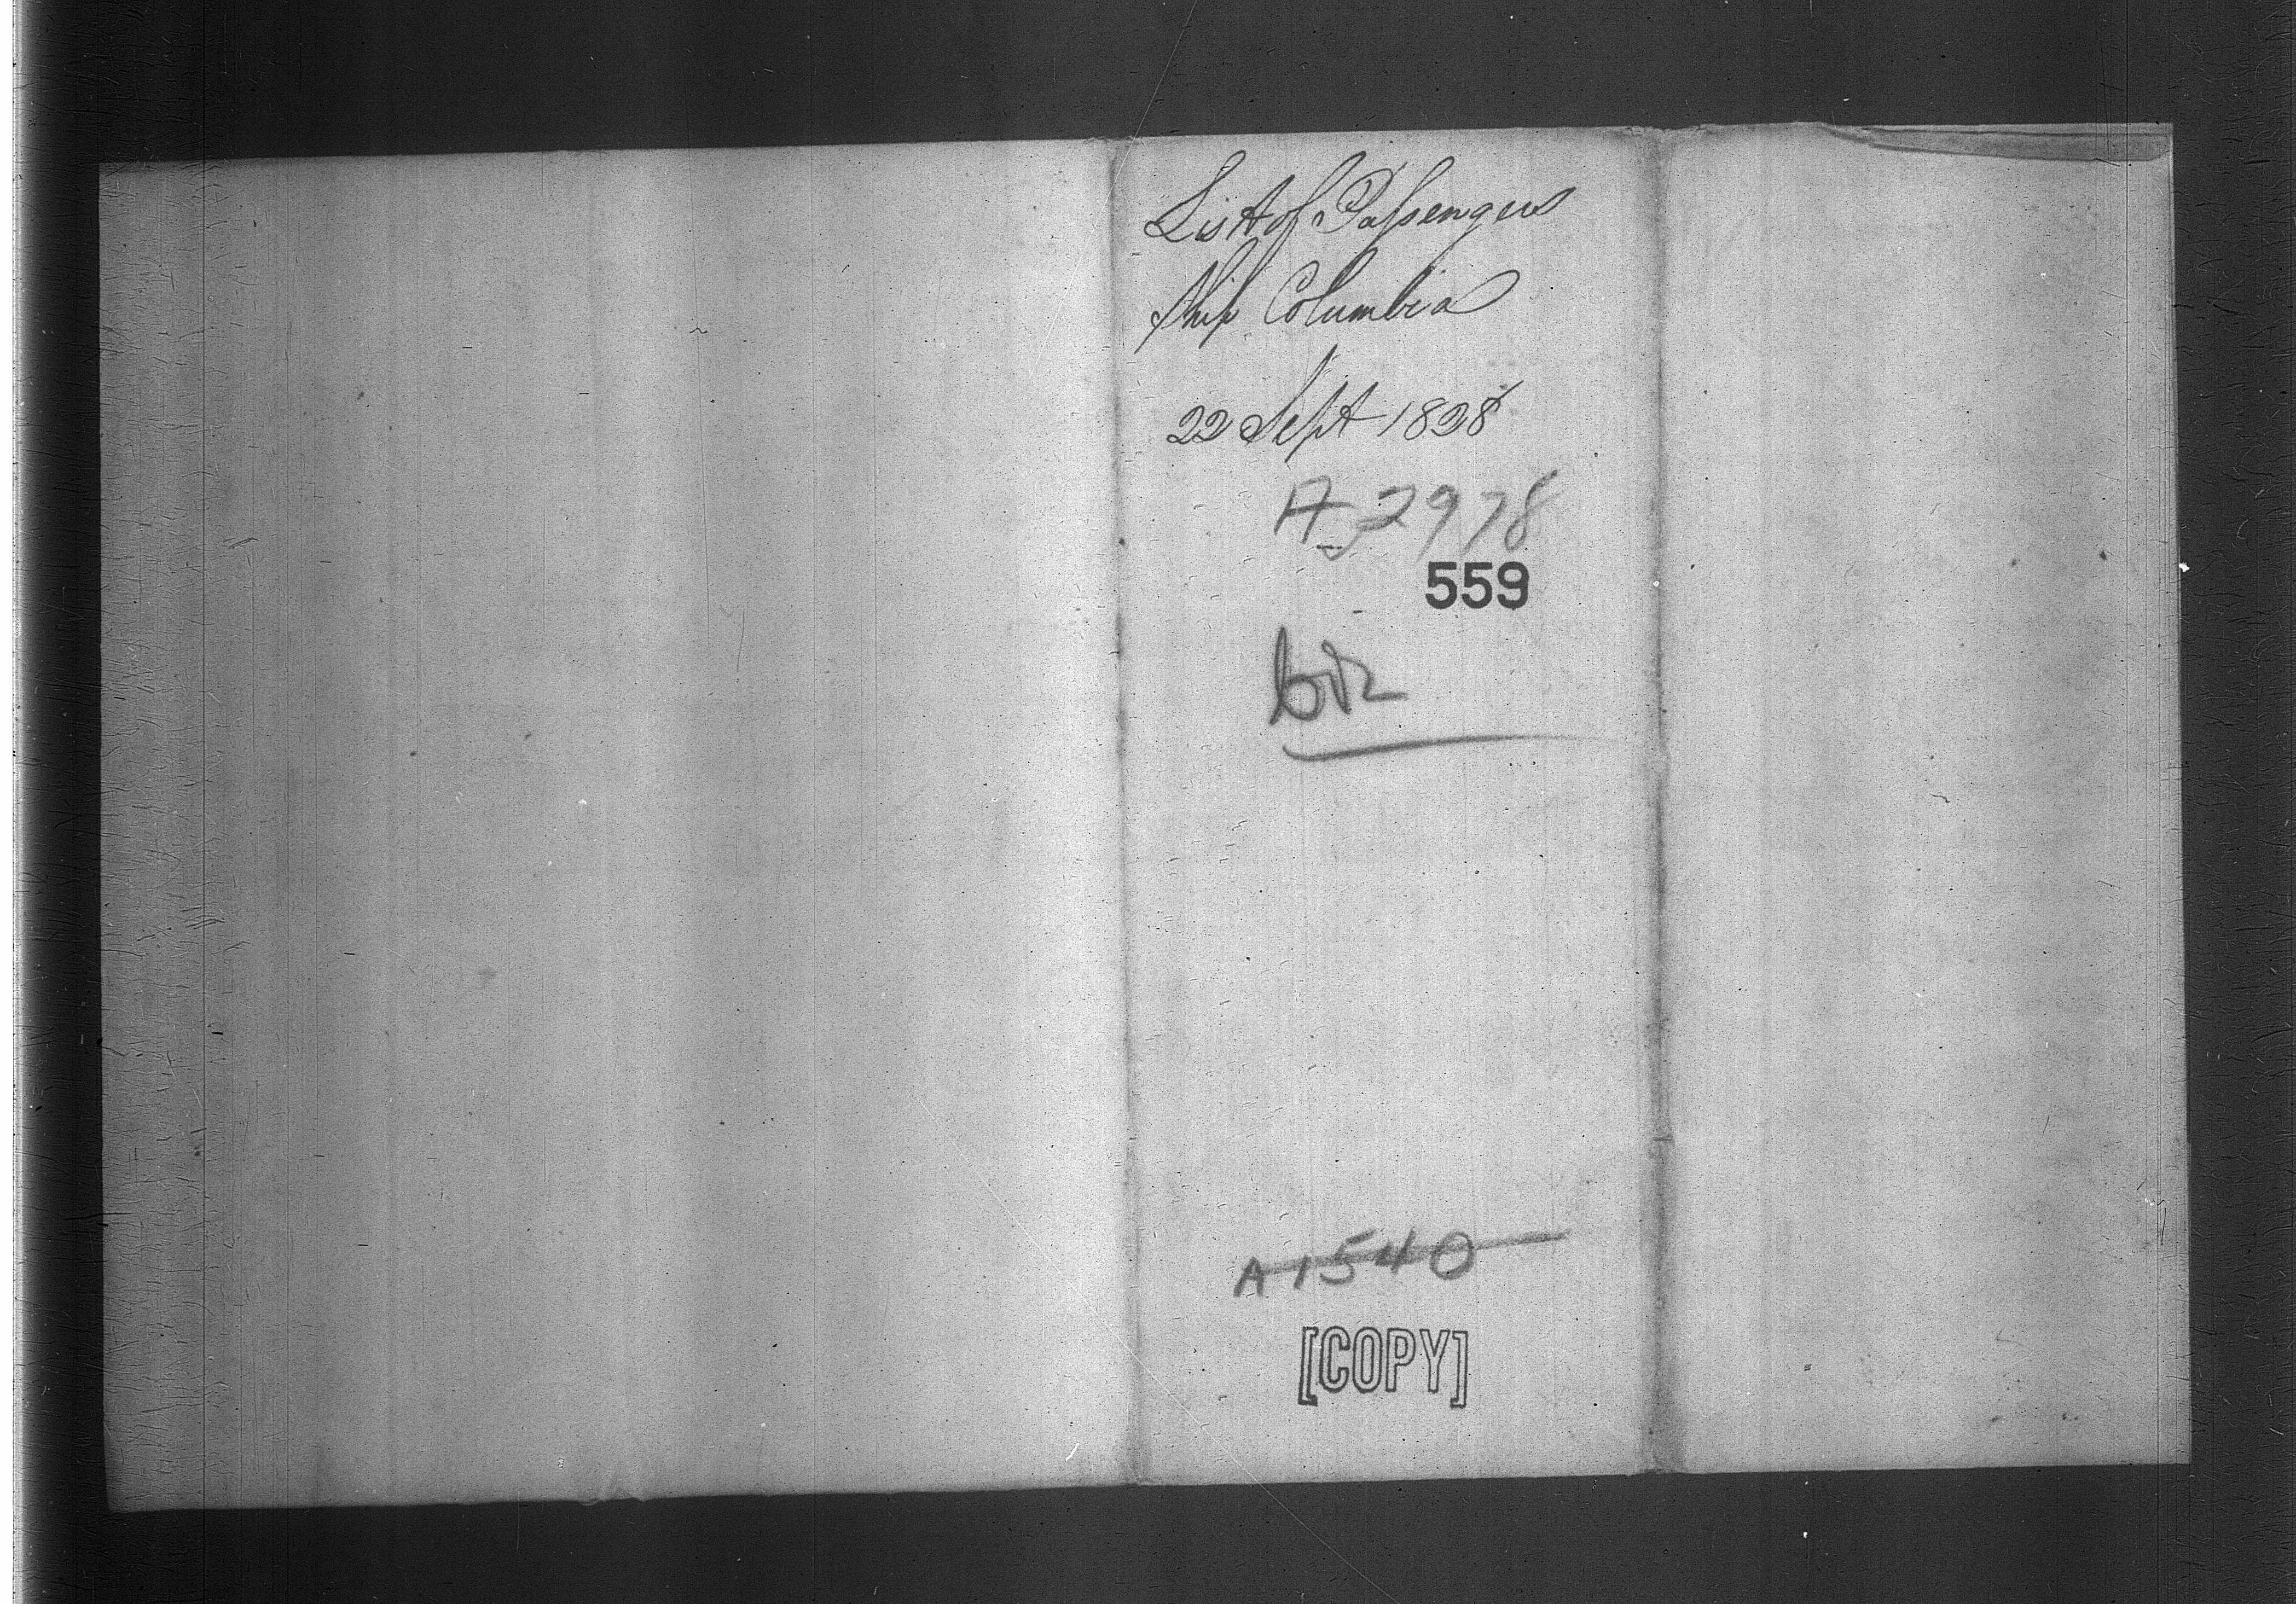 List of Passengers
Ship Columbia
22 Sept 1828
A 2978
559
A 1540
[COPY]